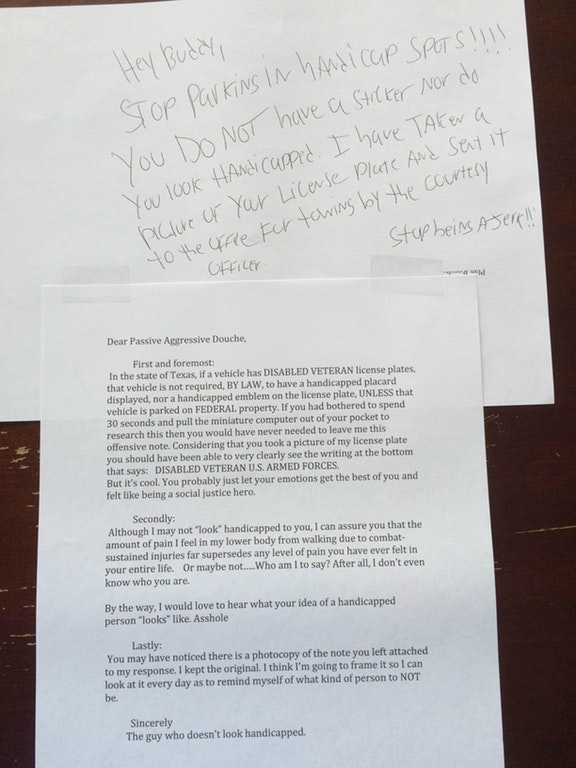 Hey Buddy,
STOP PARKING IN HANDICAP SPOTS!!!!
You DO NOT have a Sticker Nor do
You look HANDicapped. I have TAKEn a
picture of Your License Plate And Sent it
to the office For towing by the courtesy
OFFicer
Stop being A Jerk!!
Dear Passive Aggressive Douche,
First and foremost:
In the state of Texas, if a vehicle has DISABLED VETERAN license plates,
that vehicle is not required, BY LAW, to have a handicapped placard
displayed, nor a handicapped emblem on the license plate, UNLESS that
vehicle is parked on FEDERAL property. If you had bothered to spend
30 seconds and pull the miniature computer out of your pocket to
research this then you would have never needed to leave me this
offensive note. Considering that you took a picture of my license plate
you should have been able to very clearly see the writing at the bottom
that says: DISABLED VETERAN U.S. ARMED FORCES.
But it's cool. You probably just let your emotions get the best of you and
felt like being a social justice hero.
Secondly:
Although I may not "look" handicapped to you, I can assure you that the
amount of pain I feel in my lower body from walking due to combat-
sustained injuries far supersedes any level of pain you have ever felt in
your entire life. Or maybe not.....Who am I to say? After all, I don't even
know who you are.
By the way, I would love to hear what your idea of a handicapped
person "looks" like. Asshole
Lastly:
You may have noticed there is a photocopy of the note you left attached
to my response. I kept the original. I think I'm going to frame it so I can
look at it every day as to remind myself of what kind of person to NOT
be.
Sincerely
The guy who doesn't look handicapped.